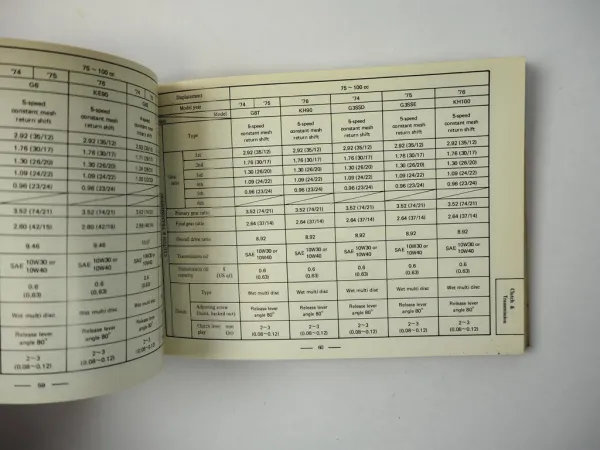 75 ~ 100 cc
'74 '75 '75
G5 KE90
5-speed constant mesh return shift 5-speed constant mesh return shift 5-speed constant mesh return shift
2.92 (35/12) 2.92 (35/12)
1.76 (30/17) 1.76 (30/17)
1.30 (26/20) 1.30 (26/20)
1.09 (24/22) 1.09 (24/22)
0.96 (23/24) 0.96 (23/24)
3.52 (74/21) 3.52 (74/21) 3.52 (74/21)
2.80 (42/15) 2.80 (42/15)
9.46 9.46
SAE 10W30 or 10W40 SAE 10W30 or 10W40 SAE
0.6 (0.63) 0.6 (0.63)
Wet multi disc Wet multi disc Wet multi disc
Release lever angle 80° Release lever angle 80° Release lever angle 80°
2~3 (0.08~0.12) 2~3 (0.08~0.12) 2~3 (0.08~0.12)
Displacement 75 ~ 100 cc
Model year '74 '75 '76 '74 '75 '76
Model G3SSD G3SSE KH100
Type 5-speed constant mesh return shift 5-speed constant mesh return shift 5-speed constant mesh return shift 5-speed constant mesh return shift 5-speed constant mesh return shift
1st 2.92 (35/12) 2.92 (35/12) 2.92 (35/12) 2.92 (35/12) 2.92 (35/12)
2nd 1.76 (30/17) 1.76 (30/17) 1.76 (30/17) 1.76 (30/17) 1.76 (30/17)
3rd 1.30 (26/20) 1.30 (26/20) 1.30 (26/20) 1.30 (26/20) 1.30 (26/20)
4th 1.09 (24/22) 1.09 (24/22) 1.09 (24/22) 1.09 (24/22) 1.09 (24/22)
5th 0.96 (23/24) 0.96 (23/24) 0.96 (23/24) 0.96 (23/24) 0.96 (23/24)
Primary gear ratio 3.52 (74/21) 3.52 (74/21) 3.52 (74/21) 3.52 (74/21) 3.52 (74/21)
Final gear ratio 2.64 (37/14) 2.64 (37/14) 2.64 (37/14) 2.64 (37/14) 2.64 (37/14)
Overall drive ratio 8.92 8.92 8.92 8.92 8.92
Transmission oil SAE 10W30 or 10W40 SAE 10W30 or 10W40 SAE 10W30 or 10W40 SAE 10W30 or 10W40 SAE 10W30 or 10W40
Transmission oil capacity (US qt) 0.6 (0.63) 0.6 (0.63) 0.6 (0.63) 0.6 (0.63) 0.6 (0.63)
Type Wet multi disc Wet multi disc Wet multi disc Wet multi disc Wet multi disc
Adjusting screw Release lever angle 80° Release lever angle 80° Release lever angle 80° Release lever angle 80° Release lever angle 80°
Clutch lever play 2~3 (0.08~0.12) 2~3 (0.08~0.12) 2~3 (0.08~0.12) 2~3 (0.08~0.12) 2~3 (0.08~0.12)
Clutch & Transmission
— 59 —
— 60 —